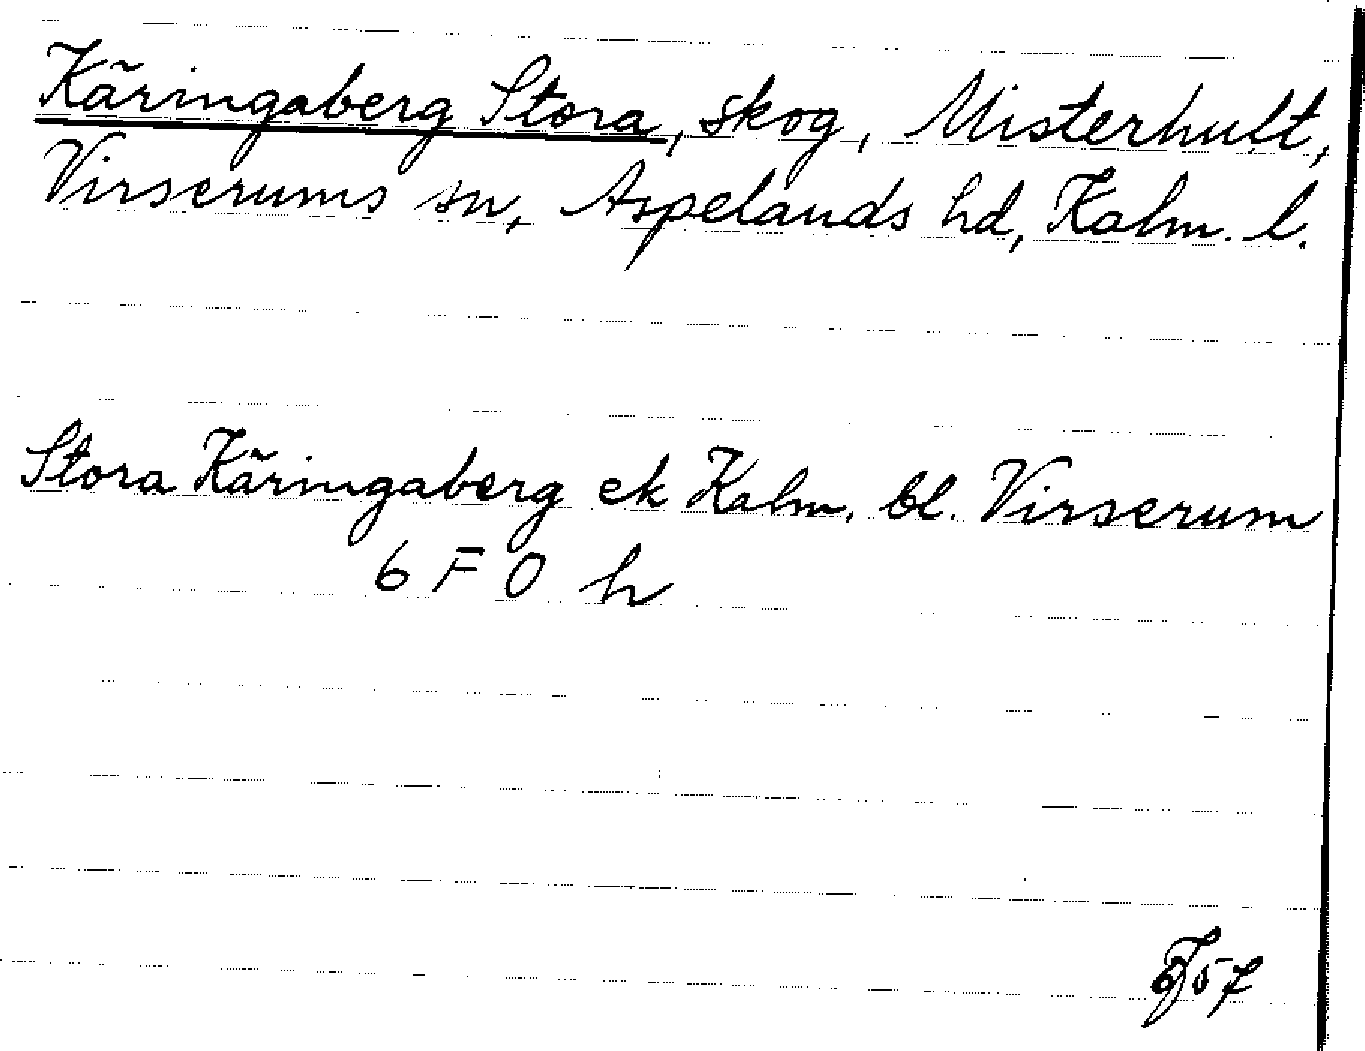 Käringaberg Stora, skog, Misterhult,
Virserums sn, Aspelands hd, Kalm. l.
Stora Käringaberg ek Kalm. bl. Virserum
6 F O h
57